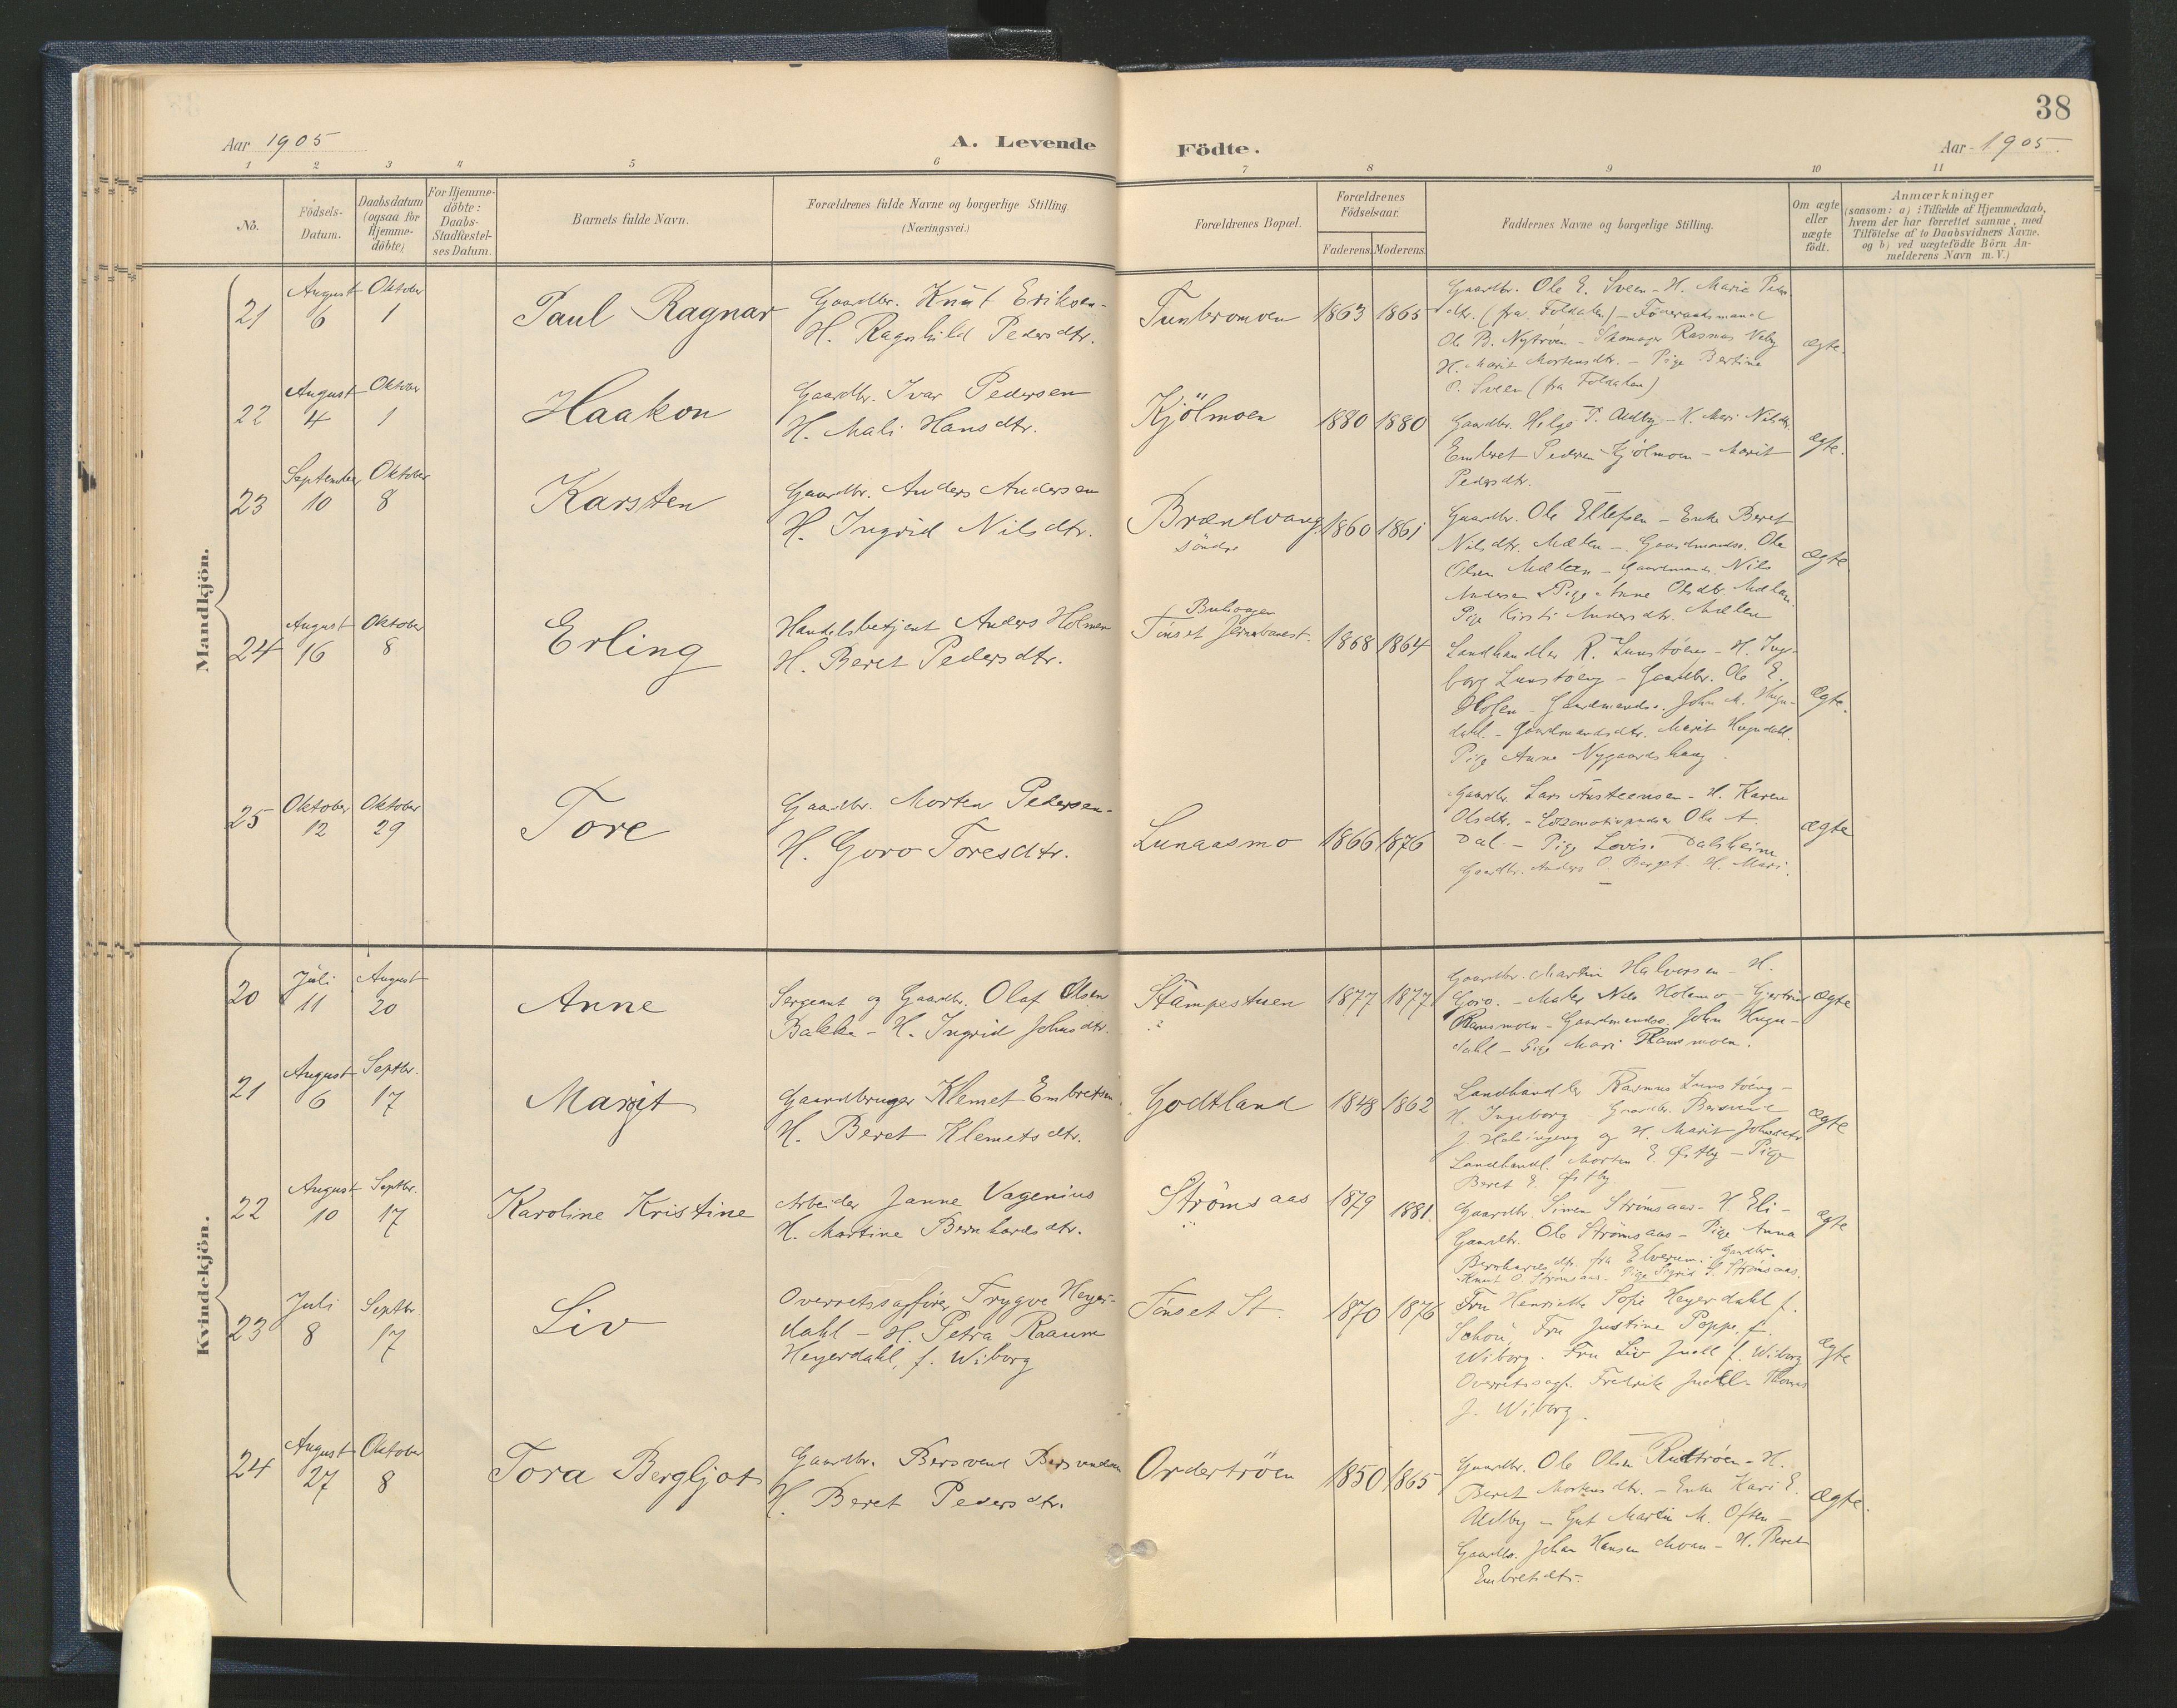 38
Aar 1905
A. Levende
Födte.
Aar 1905.
1 2 3 4 5 6 7 8 9 10 11
No.
Födsels-
Datum.
Daabsdatum
(ogsaa for
Hjemme-
döbte)
For Hjemme-
döbte:
Daabs-
Stadfæstel-
ses Datum.
Barnets fulde Navn.
Forældrenes fulde Navne og borgerlige Stilling
(Næringsvei.)
Forældrenes Bopæl.
Forældrenes
Födselsaar.
Faderens. Moderens.
Faddernes Navne og borgerlige Stilling.
Om ægte
eller
uægte
födt.
Anmærkninger
(saasom: a) i Tilfælde af Hjemmedaab,
hvem der har forrettet samme, med
Tilföielse af to Daabsvidners Navne.
og b) ved uægtefödte Börn An-
melderens Navn m. V.)
Mandkjön.
21
August
6
Oktober
1
Paul Ragnar
Gaardbr. Knut Eriksen-
H. Ragnhild Pedersdtr.
Tunbromoen
1863 1865
Gaardbr. Ole E. Sveen - H. Marie Peders
dtr. (fra Foldalen) - Föderaadsmand
Ole B. Nytröen - Skomager Rasmus
H. Marit Mortensdtr. - Pige Bertine
O. Sveen (fra Foldalen)
ægte.
22
August
4
Oktober
1
Haakon
Gaardbr. Ivar Pedersen
H. Mali Hansdtr.
Kjölmoen
1880 1880
Gaardbr. Helge P. Aldby - H. Mari Nilsdtr.
Embret Pedersen Kjölmoen - Marit
Pedersdtr.
ægte.
23
September
10
Oktober
8
Karsten
Gaardbr. Anders Andersen
H. Ingrid Nilsdtr.
Brændvang
söndre
1860 1861
Gaardbr. Ole Ellefsen - Enke Beret
Nilsdtr. Mælen - Gaardmandss. Ole
Olsen Mælen - Gaardmands. Nils
Andersen Pige Anne Olsdtr. Mælen.
Pige Kirsti Andersdtr. Mælen
ægte
24
August
16
Oktober
8
Erling
Handelsbetjent Anders Holmen
H. Beret Pedersdtr.
Buhaugen
Tönset Jernbanest.
1868 1864
Landhandler R. Lunstöeng - H. Inge-
borg Lunstöeng - Gaardbr. Ole E.
Holen - Gaardmandss. John M. Hugu-
dahl. - Gaardmandsdtr. Marit Hugudahl.
Pige Anne Nygaardshaug.
ægte.
25
Oktober
12
Oktober
29
Tore
Gaardbr. Morten Pedersen-
H. Goro Toresdtr.
Lunaasmo
1866 1876
Gaardbr. Lars Austeensen - H. Karen
Olsdtr. - Locomotivpudser Ole A.
Dal - Pige Lovise Dalsheim
Gaardbr. Anders O. Berget. H. Mari.
ægte
Kvindekjön.
20
Juli
11
August
20
Anne
Sergeant og Gaardbr. Olaf Olsen
Bakke - H. Ingrid Johnsdtr.
Stampestuen
1877 1877
Gaardbr. Martin Halvorsen - H.
Goro. - Maler Nils Holemo - Gjertrud
Ramsmoen - Gaardmandss. John Hugu-
dahl - Pige Mari Ramsmoen.
ægte
21
August
6
Septbr.
17
Marit
Gaardbruger Klemet Embretsen
H. Beret Klemetsdtr.
Godtland
1848 1862
Landhandler Rasmus Lunstöeng -
H. Ingeborg - Gaardbr. Bersvend
J. og H. Marit Johnsdtr
Landhandl. Morten E. Østby - Pige
Beret E. Østby
ægte
22
August
10
Septbr.
17
Karoline Kristine
Arbeider Janne Vagenius
H. Martine Bernhardsdtr.
Strömsaas
1879 1881.
Gaardbr. Simen Strömsaas - H. Eli -
Gaardbr. Ole Strömsaas - Pige Anna
Bernhardsdtr. fra Elverum. Gaardbr.
Knut O. Strömsaas. Pige Sigrid S. Strömsaas.
ægte
23
Juli
8
Septbr.
17
Liv
Overretssagförer Trygve Heyer-
dahl - H. Petra Raaum
Heyerdahl, f. Wiborg
Tönset St.
1870 1876
Fru Henriette Sofie Heyerdahl f.
Schou, Fru Justine Poppe, f.
Wiborg. Fru Liv Juell f. Wiborg
Overretssagf. Fredrik Juell - Thomas
J. Wiborg.
ægte
24
August
27
Oktober
8
Tora Bergljot
Gaardbr. Bersvend Bersvendsen
H. Beret Pedersdtr.
Ordertröen
1850 1865
Gaardbr. Ole Olsen Rudtröen - H.
Beret Mortensdtr. - Enke Kari E.
Aldby - Gut Martin M. Often -
Gaardbr. Johan Hansen Moan - H. Beret
Embretsdtr.
ægte.